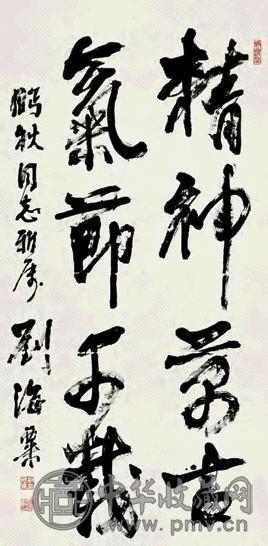 精神萬古
氣節千載
鶴秋同志雅屬
劉海粟
中华收藏网
www.pmv.cn